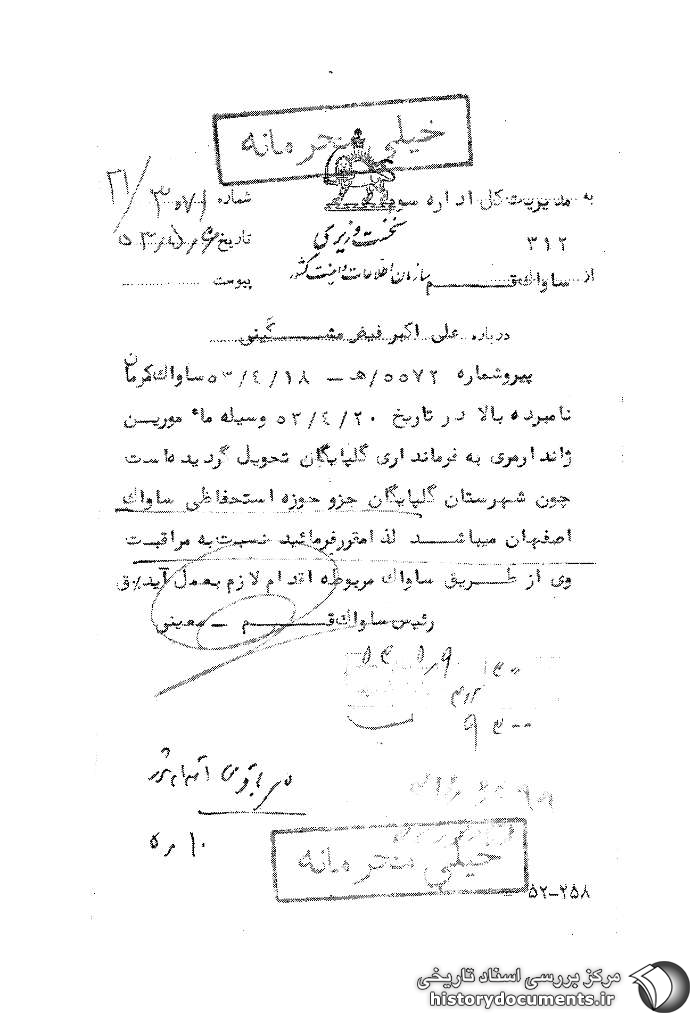 خیلی محرمانه
به مدیریت کل اداره سوم
شماره ۳۰۷۱/۲۱
نخست وزیری
۳۱۲
تاریخ
سازمان اطلاعات و امنیت کشور
از ساواک قم
پیوست
درباره علی اکبر فیض مشگینی
پیرو شماره ۵۵۷۲/هـ – ۵۳/٤/۱۸ ساواک کرمان
نامبرده بالا در تاریخ ۵۳/٤/۲۰ وسیله مأمورین
ژاندارمری به فرمانداری گلپایگان تحویل گردیده است
چون شهرستان گلپایگان جزو حوزه استحفاظی ساواک
اصفهان میباشد لذا مقرر فرمائید نسبت به مراقبت
وی از طریق ساواک مربوطه اقدام لازم بعمل آید/ق
رئیس ساواک قم – معینی
خیلی محرمانه
۵۲–۲۵۸
مرکز بررسی اسناد تاریخی
historydocuments.ir